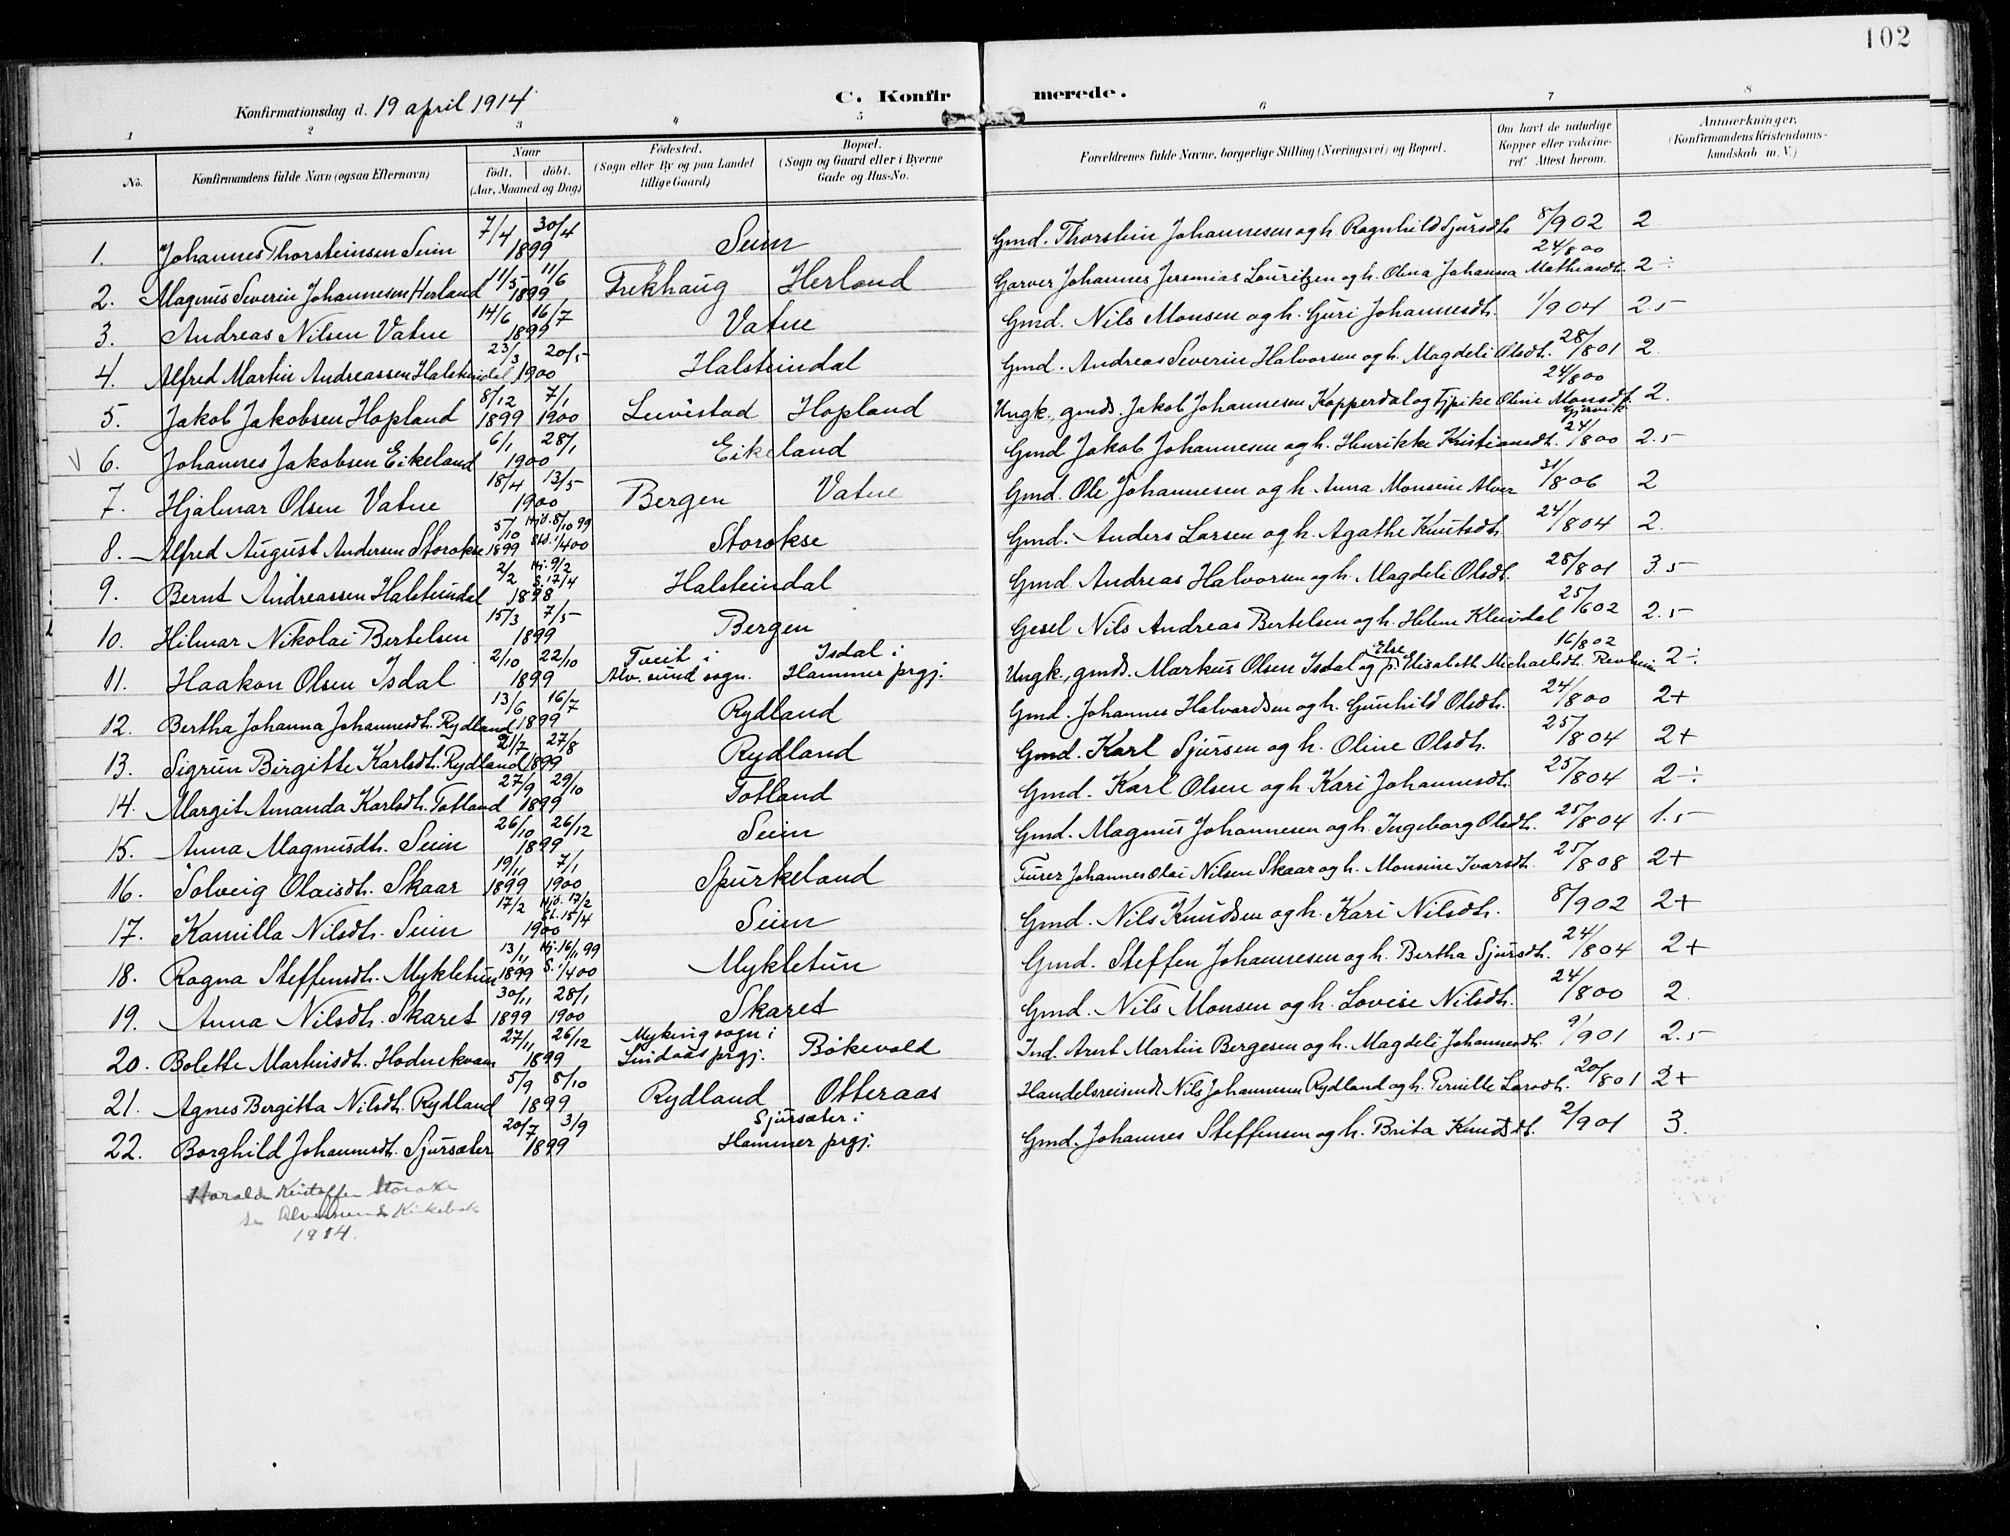 102
Konfirmationsdag d. 19 april 1914
C. Konfirmerede.
1 2 3 4 5 6 7 8
No. Konfirmandens fulde Navn (ogsaa Efternavn) Naar født. døbt. (Aar, Maaned og Dag) Fødested. (Sogn eller By og paa Landet tillige Gaard) Bopæl. (Sogn og Gaard eller i Byerne Gade og Hus-No. Forældrenes fulde Navne, borgerlige Stilling (Næringsvei) og Bopæl. Om havt de naturlige Kopper eller vaccineret? Attest herom. Anmærkninger. (Konfirmandens Kristendomskundskab m. V.)
1. Johannes Thorsteinsen Seim 7/4 30/4 1899 Seim Gmd. Thorstein Johannesen og h. Ragnhild Sjursdt. 8/902 2
2. Magnus Severin Johannesen Herland 11/5 11/6 1899 Frekhaug Herland Garver Johannes Jeremias Louritzen og h. Olina Johanna Mathiasdt. 24/800 2÷
3. Andreas Nilsen Vatne 14/6 16/7 1899 Vatne Gmd. Nils Monsen og h. Guri Johannesdt. 1/904 2.5
4. Alfred Martin Andreassen Halsteindal 23/3 20/5 1900 Halsteindal Gmd. Andreas Severin Halvorsen og h. Magdeli Olsdt. 28/801 2.
5. Jakob Jakobsen Hopland 8/12 1899 7/1 1900 Leivestad Hopland Ungk., gmds. Jakob Johannesen Kopperdal og pike Oline Monsdt. Gjervik 24/800 2.
6. Johannes Jakobsen Eikeland 6/1 28/1 1900 Eikeland Gmd Jakob Johannesen og h. Henrikke Kristiansdt. 24/800 2.5
7. Hjalmar Olsen Vatne 18/4 13/5 1900 Bergen Vatne Gmd. Ole Johannesen og h. Anna Monsine Alver 31/806 2
8. Alfred August Andersen Storokse 5/10 1899 Hjd. 8/10 99 Std. 1/400 Storokse Gmd. Anders Larsen og h. Agathe Knutsdt. 24/804 2.
9. Bernt Andreassen Halsteindal 2/2 Hj. 9/2 S. 17/4 1898 Halsteindal Gmd Andreas Halvorsen og h. Magdeli Olsdt. 28/801 3.5
10. Hilmar Nikolai Bertelsen 15/3 7/5 1899 Bergen Gesel Nils Andreas Bertelsen og h. Helene Kleivdal 25/602 2.5
11. Haakon Olsen Isdal 2/10 22/10 1899 Tveit i Alv.sund sogn. Isdal i Hammer prgj. Ungk., gmds. Markus Olsen Isdal og p. Else Elisabeth Michaelsdt. 16/802 2÷
12. Bertha Johanna Johannesdt. Rydland 13/6 16/7 1899 Rydland Gmd. Johannes Halvardsen og h. Gunhild Olsdt. 24/800 2+
13. Sigrun Birgitte Karlsdt. Rydland 21/7 27/8 1899 Rydland Gmd. Karl Sjursen og h. Oline Olsdt. 25/804 2+
14. Margit Amanda Karlsdt. Totland 27/9 29/10 1899 Totland Gmd. Karl Olsen og h. Kari Johannesdt. 25/804 2÷
15. Anna Magnusdt. Seim 26/10 26/12 1899 Seim Gmd. Magnus Johannesen og h. Ingeborg Olsdt. 25/804 1.5
16. Solveig Olaisdt. Skaar 19/11 1899 7/1 1900 Spurkeland Furer Johannes Olai Nilsen Skaar og h. Monsine Ivarsdt. 25/808 2+
17. Kamilla Nilsdt. Seim 17/2 Hjd. 17/2 St. 15/4 1900 Seim Gmd. Nils Knudsen og h. Kari Nilsdt. 8/902 2+
18. Ragna Steffensdt. Mykletun 13/11 1899 Hj. 16/11 99 S. 1/400 Mykletun Gmd. Steffen Johannesen og h. Bertha Sjursdt. 24/804 2+
19. Anna Nilsdt. Skaret 30/11 1899 28/1 1900 Skaret Gmd. Nils Monsen og h. Lovise Nilsdt. 24/800 2
20. Bolette Martinsdt. Hodnekvam 27/11 26/12 1899 Myking sogn i Lindaas prgj. Bøkevold Ind. Arent Martin Bergesen og h. Magdeli Johannesdt. 9/901 2.5
21. Agnes Bergitta Nilsdt. Rydland 5/9 8/10 1899 Rydland Otteraas Handelsreisende Nils Johannesen Rydland og h. Pernille Larsdt. 20/801 2+
22. Borghild Johannesdt. Sjursæter 20/7 3/9 1899 Sjursæter i Hammer prgj. Gmd. Johannes Steffensen og h. Brita Knudsdt. 2/901 3.
Harald Kristoffer Storokse
se Alversund Kirkebok
1914.